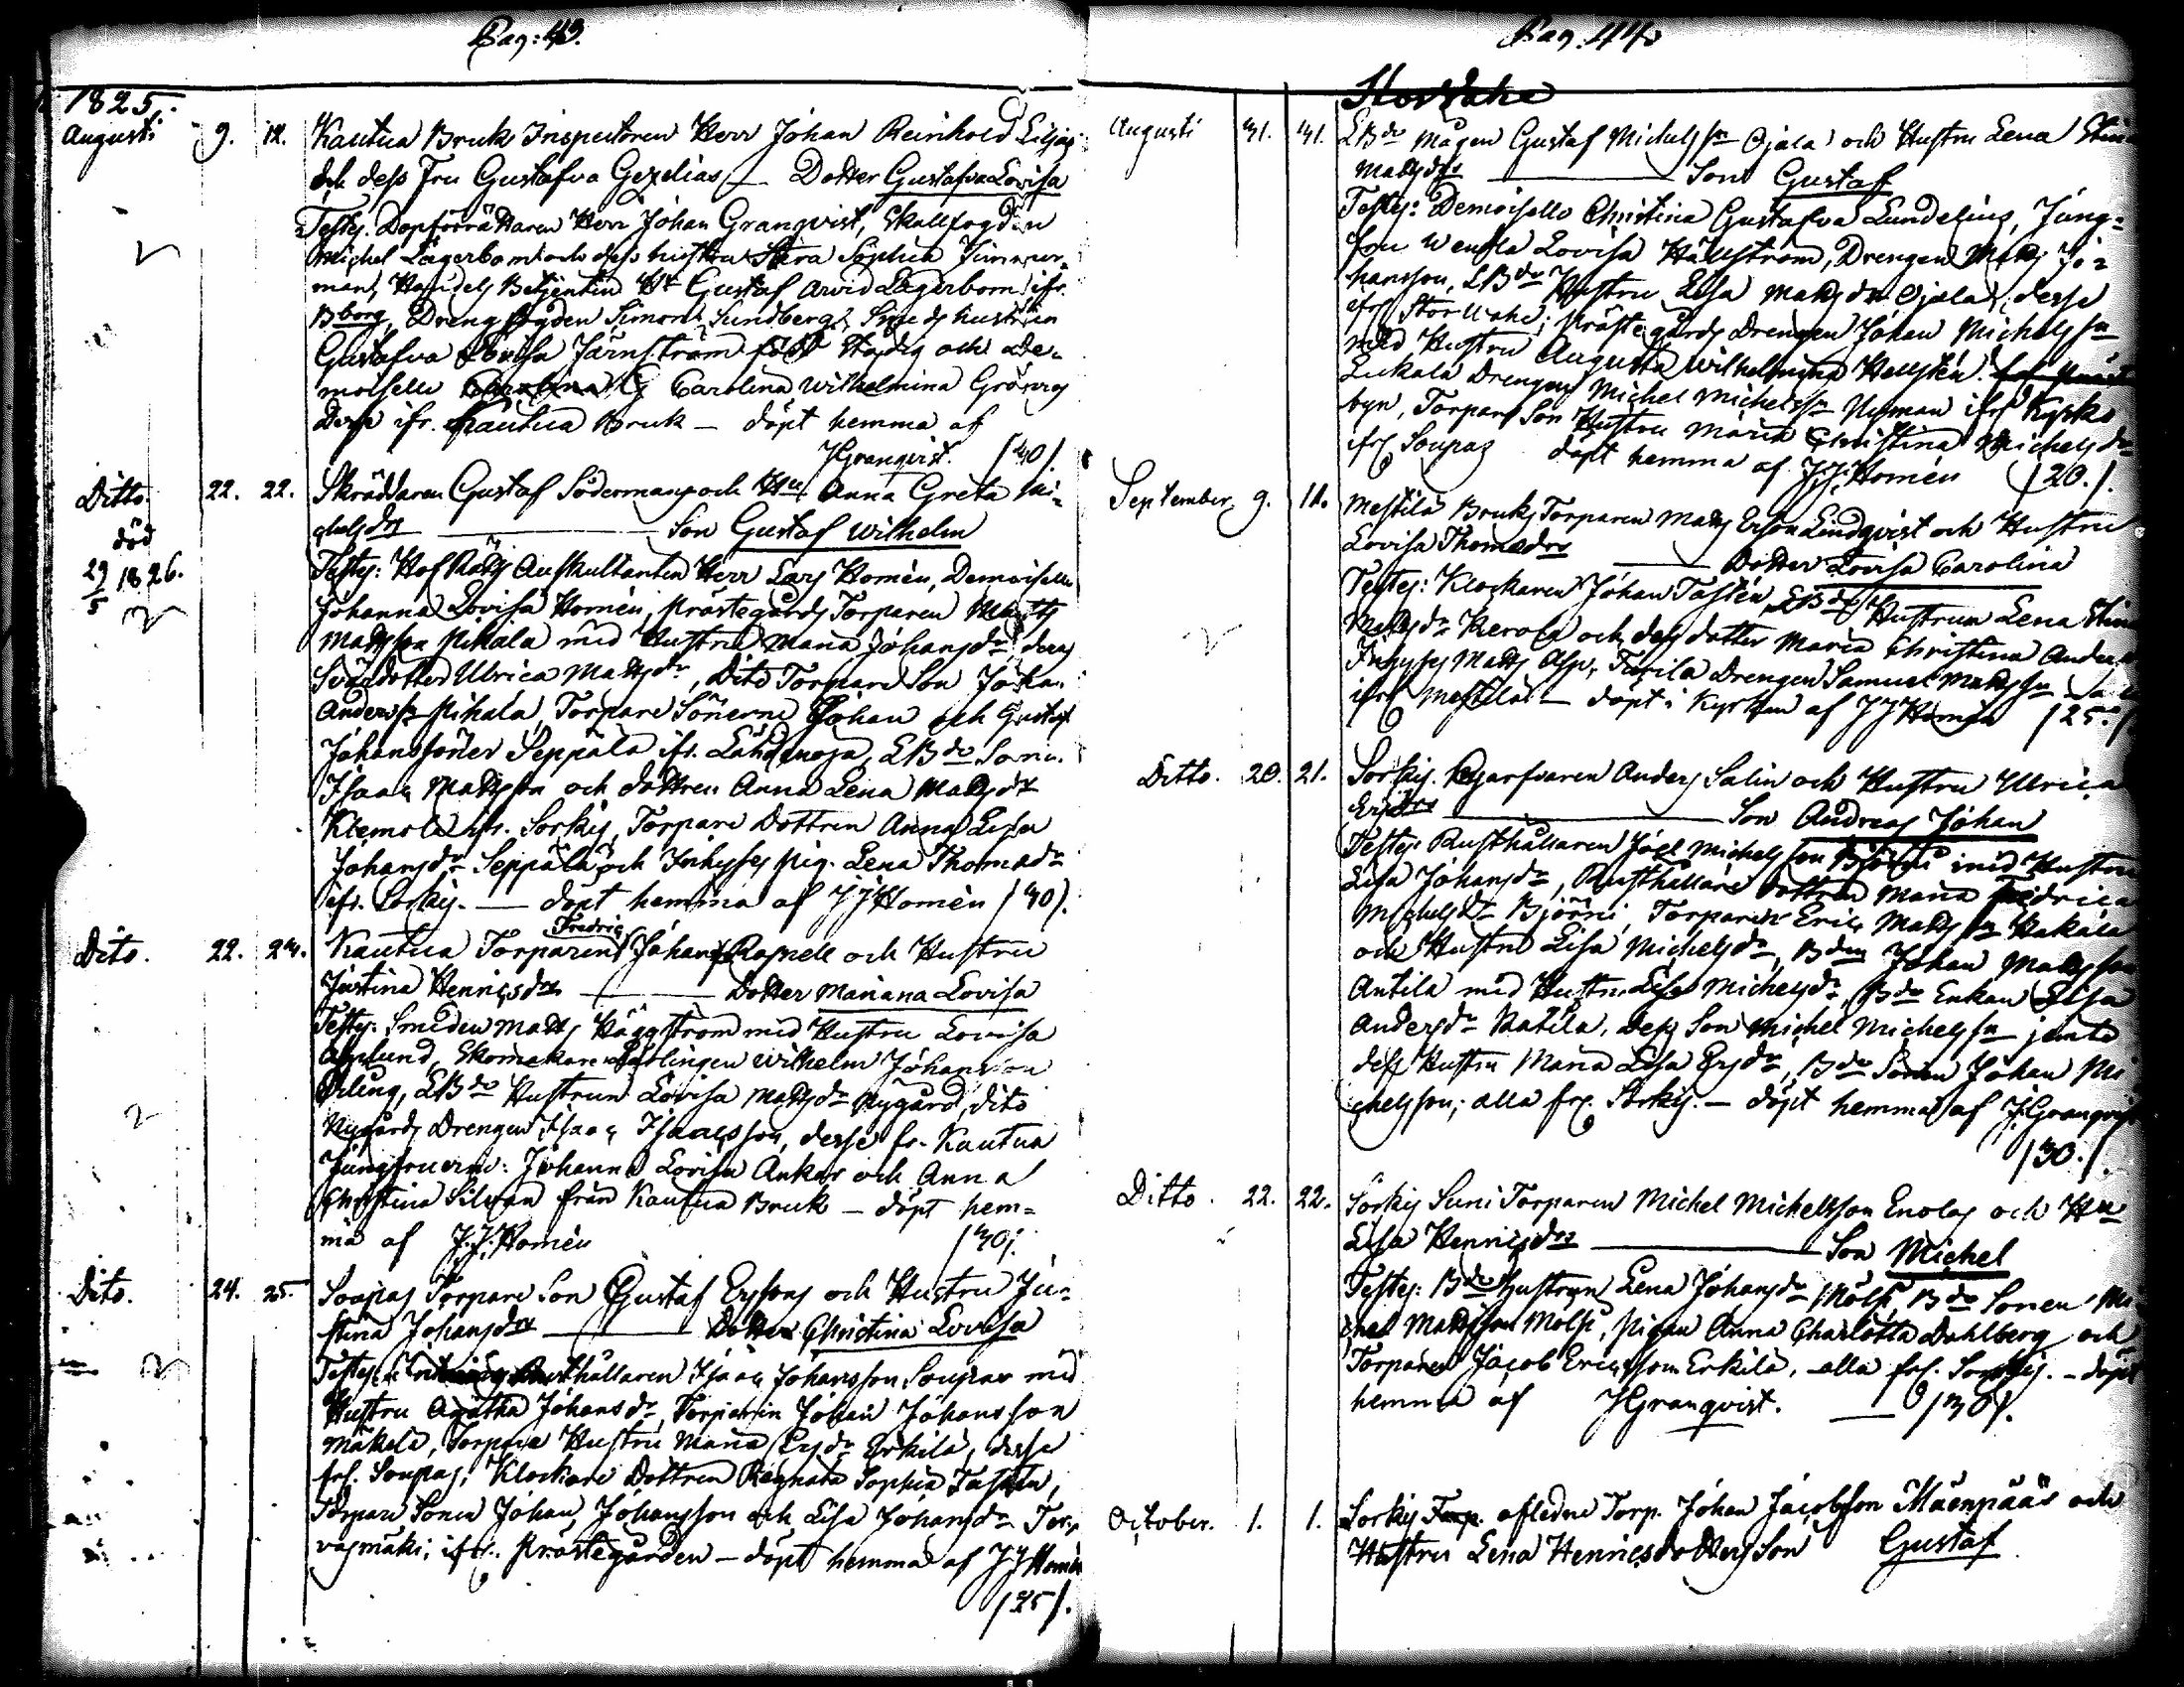 Pag: 43.
1825.
Augusti 9. 12. Kautua Bruk Inspectoren Herr Johan Reinhold Liljas
och dess Fru Gustafva Gezelias — Dotter Gustafva Lovisa
Testes. Dopförrättaren Herr Johan Granqvist, Skallfogden
Michel Lagerbom och dess hustru Sara Sophia Timmer-
man, Handels Betjenten Hr Gustaf Arvid Lagerbom ifr.
Bborg, Dreng fogden Simon Sundberg, Smeds hustrun
Gustafva Lovisa Järnström född och De-
moiselle Carolina Wilhelmina Grönros
desse ifr. Kautua Bruk — döpt hemma af
JGranqvist. /40/.
Ditto. 22. 22. Skräddaren Gustaf Söderman och Hu Anna Greta Mi-
chelsdrs — Son Gustaf Wilhelm
död
29/5 1826.
Testes: Hof Rätts Auskultanten Herr Lars Homén, Demoiselle
Johanna Lovisa Homén, Prästegårds Torparen Matts
Mattsson Pihala med Hustru Maria Johansdr deras
Ulrica Mattsdr, Dito Torpare Son Johan
Anderss. Pihala, Torpare Sönerne Johan och Gustaf
Johanssöner Seppälä ifr. Lähdenoja, LBde Sonen
Isaac Mattsson och dottren Anna Lena Mattsdr
Klemola ifr. Sorkis, Torpare Dottren Anna Lisa
Johansdr Seppälä och Inhyses pig. Lena Thomædr
ifr. Sorkis. — döpt hemma af JJHomén /40/.
Dito. 22. 24. Kautua Torparens Johan Fredric Rosnell och Hustru
Justina Henricsdrs — Dotter Mariana Lovisa
Testes: Smeden Matts Häggström med Hustru Lovisa
Asplund, Skomakare Lärlingen Wilhelm Johansson
LBde Hustrun Lovisa Mattsdr Nygård, dito
Nygårds Drengen Isaac Isaacsson, desse fr. Kautua
Jungfruerne: Johanna Lovisa Ankar och Anna
Christina Silvan från Kautua Bruk — döpt hem-
ma af J.J.Homén /30/.
Dito. 24. 25. Soupas Torpare Son Gustaf Erssons och Hustru Ju-
stina Johansdrs — Dotter Christina Lovisa
Testes: Rusthållaren Isaac Johansson Soupas med
Hustru Agatha Johansdr, Torparen Johan Johansson
Mäkelä, Torpare Hustru Maria Ersdr Erkilä, desse
frs. Soupas; Klockare Dottren Regnata Sophia Tastén,
Torpare Sonen Johan Johansson och Lisa Johansdr Tor-
vasmäki; ifr. Prästegården — döpt hemma af JJHomén
/25/.
Pag. 44.
Storwahe
Augusti 31. 31. LBde Mågen Gustaf Michelsson Ojala och Hustru Lena Stin
Mattsdrs — Son Gustaf
Testes: Demoiselle Christina Gustafva Lundelius, Jung-
fru Wendla Lovisa Hällström, Drengen Matts Jo-
hansson, LBde Hustru Lisa Mattsdr Ojala, desse
ifrs Storwahe; Prästegårds Drengen Johan Michelsson
med Hustru Augusta Wilhelmina Hellstén.
Lukala Drengen Michel Michelsson Nyman ifrs Kyrko
byn, Torpare Son Hustru Maria Christina Michelsdr
ifrs Soupas döpt hemma af J.J.Homén /20./.
September 9. 11. Mestilä Bruks Torparen Matts Ersson Lindqvist och Hustru
Lovisa Thomædrs — Dotter Lovisa Carolina
Testes: Klockaren Johan Tastén, LBde Hustrun Lena Stin
Mattsdr Kerola och dess dotter Maria Christina Anders
Inhyses Matts Asp, Turila Drengen Samuel Mattsson
ifrs Mestilä — döpt i Kyrkan af JJHomén /25./.
Ditto. 20. 21. Sorkis. Garfvaren Anders Salin och Hustru Ulrica
Ersdrs — Son Andreas Johan
Testes: Rusthållaren Joel Michelsson Björni med Hustru
Lisa Johansdr, Rusthållare Dottren Maria Fredrica
Michelsdr Björni, Torparen Eric Mattsson Hakala
och Hustru Lisa Michelsdr, Bden Johan Mattsson
Antila med Hustru Lisa Michelsdr, Bde Enkan Lisa
Andersdr Katila, dess Son Michel Michelsson jemte
dess Hustru Maria Lisa Ersdr, Bde Sonen Johan Mi-
chelsson; alla frs. Sorkis. — döpt hemma af J.Granqvist
/30./.
Ditto. 22. 22. Sorkis Suni Torparen Michel Michelsson Enolas och Hu
Lisa Henricsdrs — Son Michel
Testes: Bde Hustrun Lena Johansdr Mölsi, Bde Sonen Mi-
chel Mattsson Mölsi, pigan Anna Charlotta Dahlberg och
Torparen Jacob Ericsson Erkilä, alla frs. Sorkis. — döpt
hemma af JGranqvist. — /30/.
October. 1. 1. Sorkis Torp. afledne Torp. Johan Jacobsson Mäenpääs och
Hustrus Lena Henricsdotters Son Gustaf